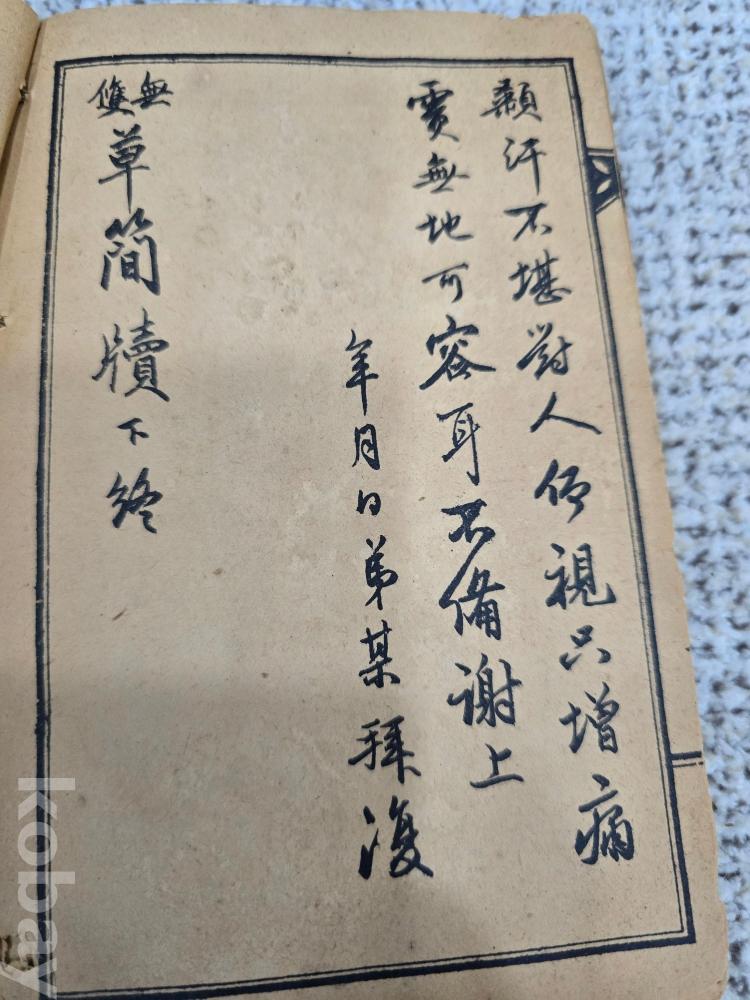 顙汗不堪對人仰視只增痛
霣無地可容耳不備謝上
年月日弟某拜復
無雙草簡牘下終
kobay